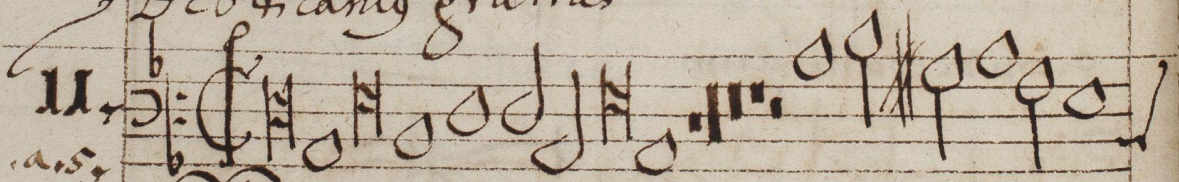 Deo dicamus gratias
11.
.a.5.